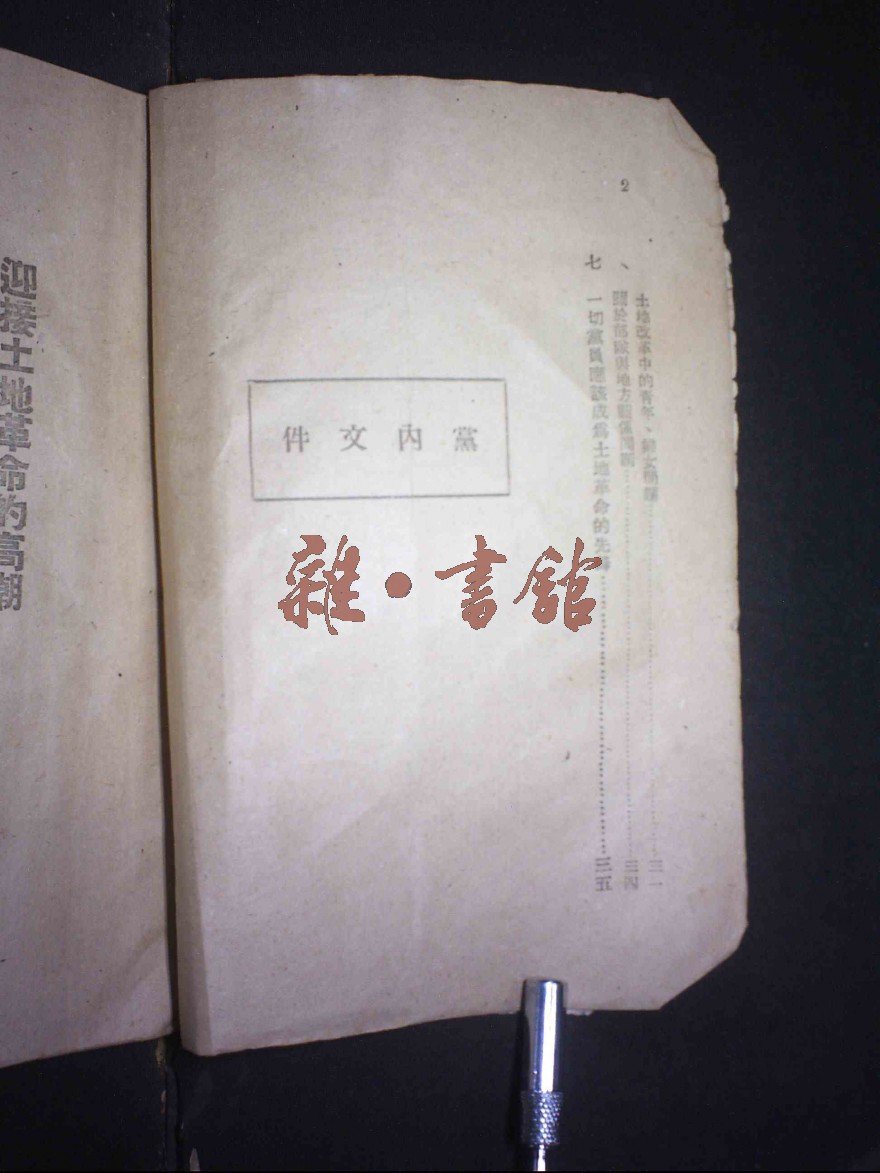 2
土地改革中的青年、婦女問題……三一
關於部隊與地方關係問題……三四
七、一切黨員應該成爲土地革命的先鋒……三五
黨內文件
雜·書館
迎接土地革命的高潮